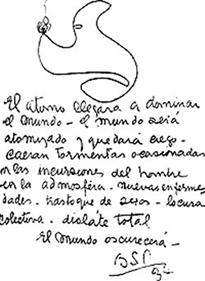 El átomo llegara a dominar
el mundo - el mundo será
atomizado y quedará ciego -
caeran tormentas ocasionadas
en las incursiones del hombre
con la admosfera - nuevas enferme
dades - trastoque de sexos - locura
colectiva - dislate total
El mundo oscurecerá -
BSP